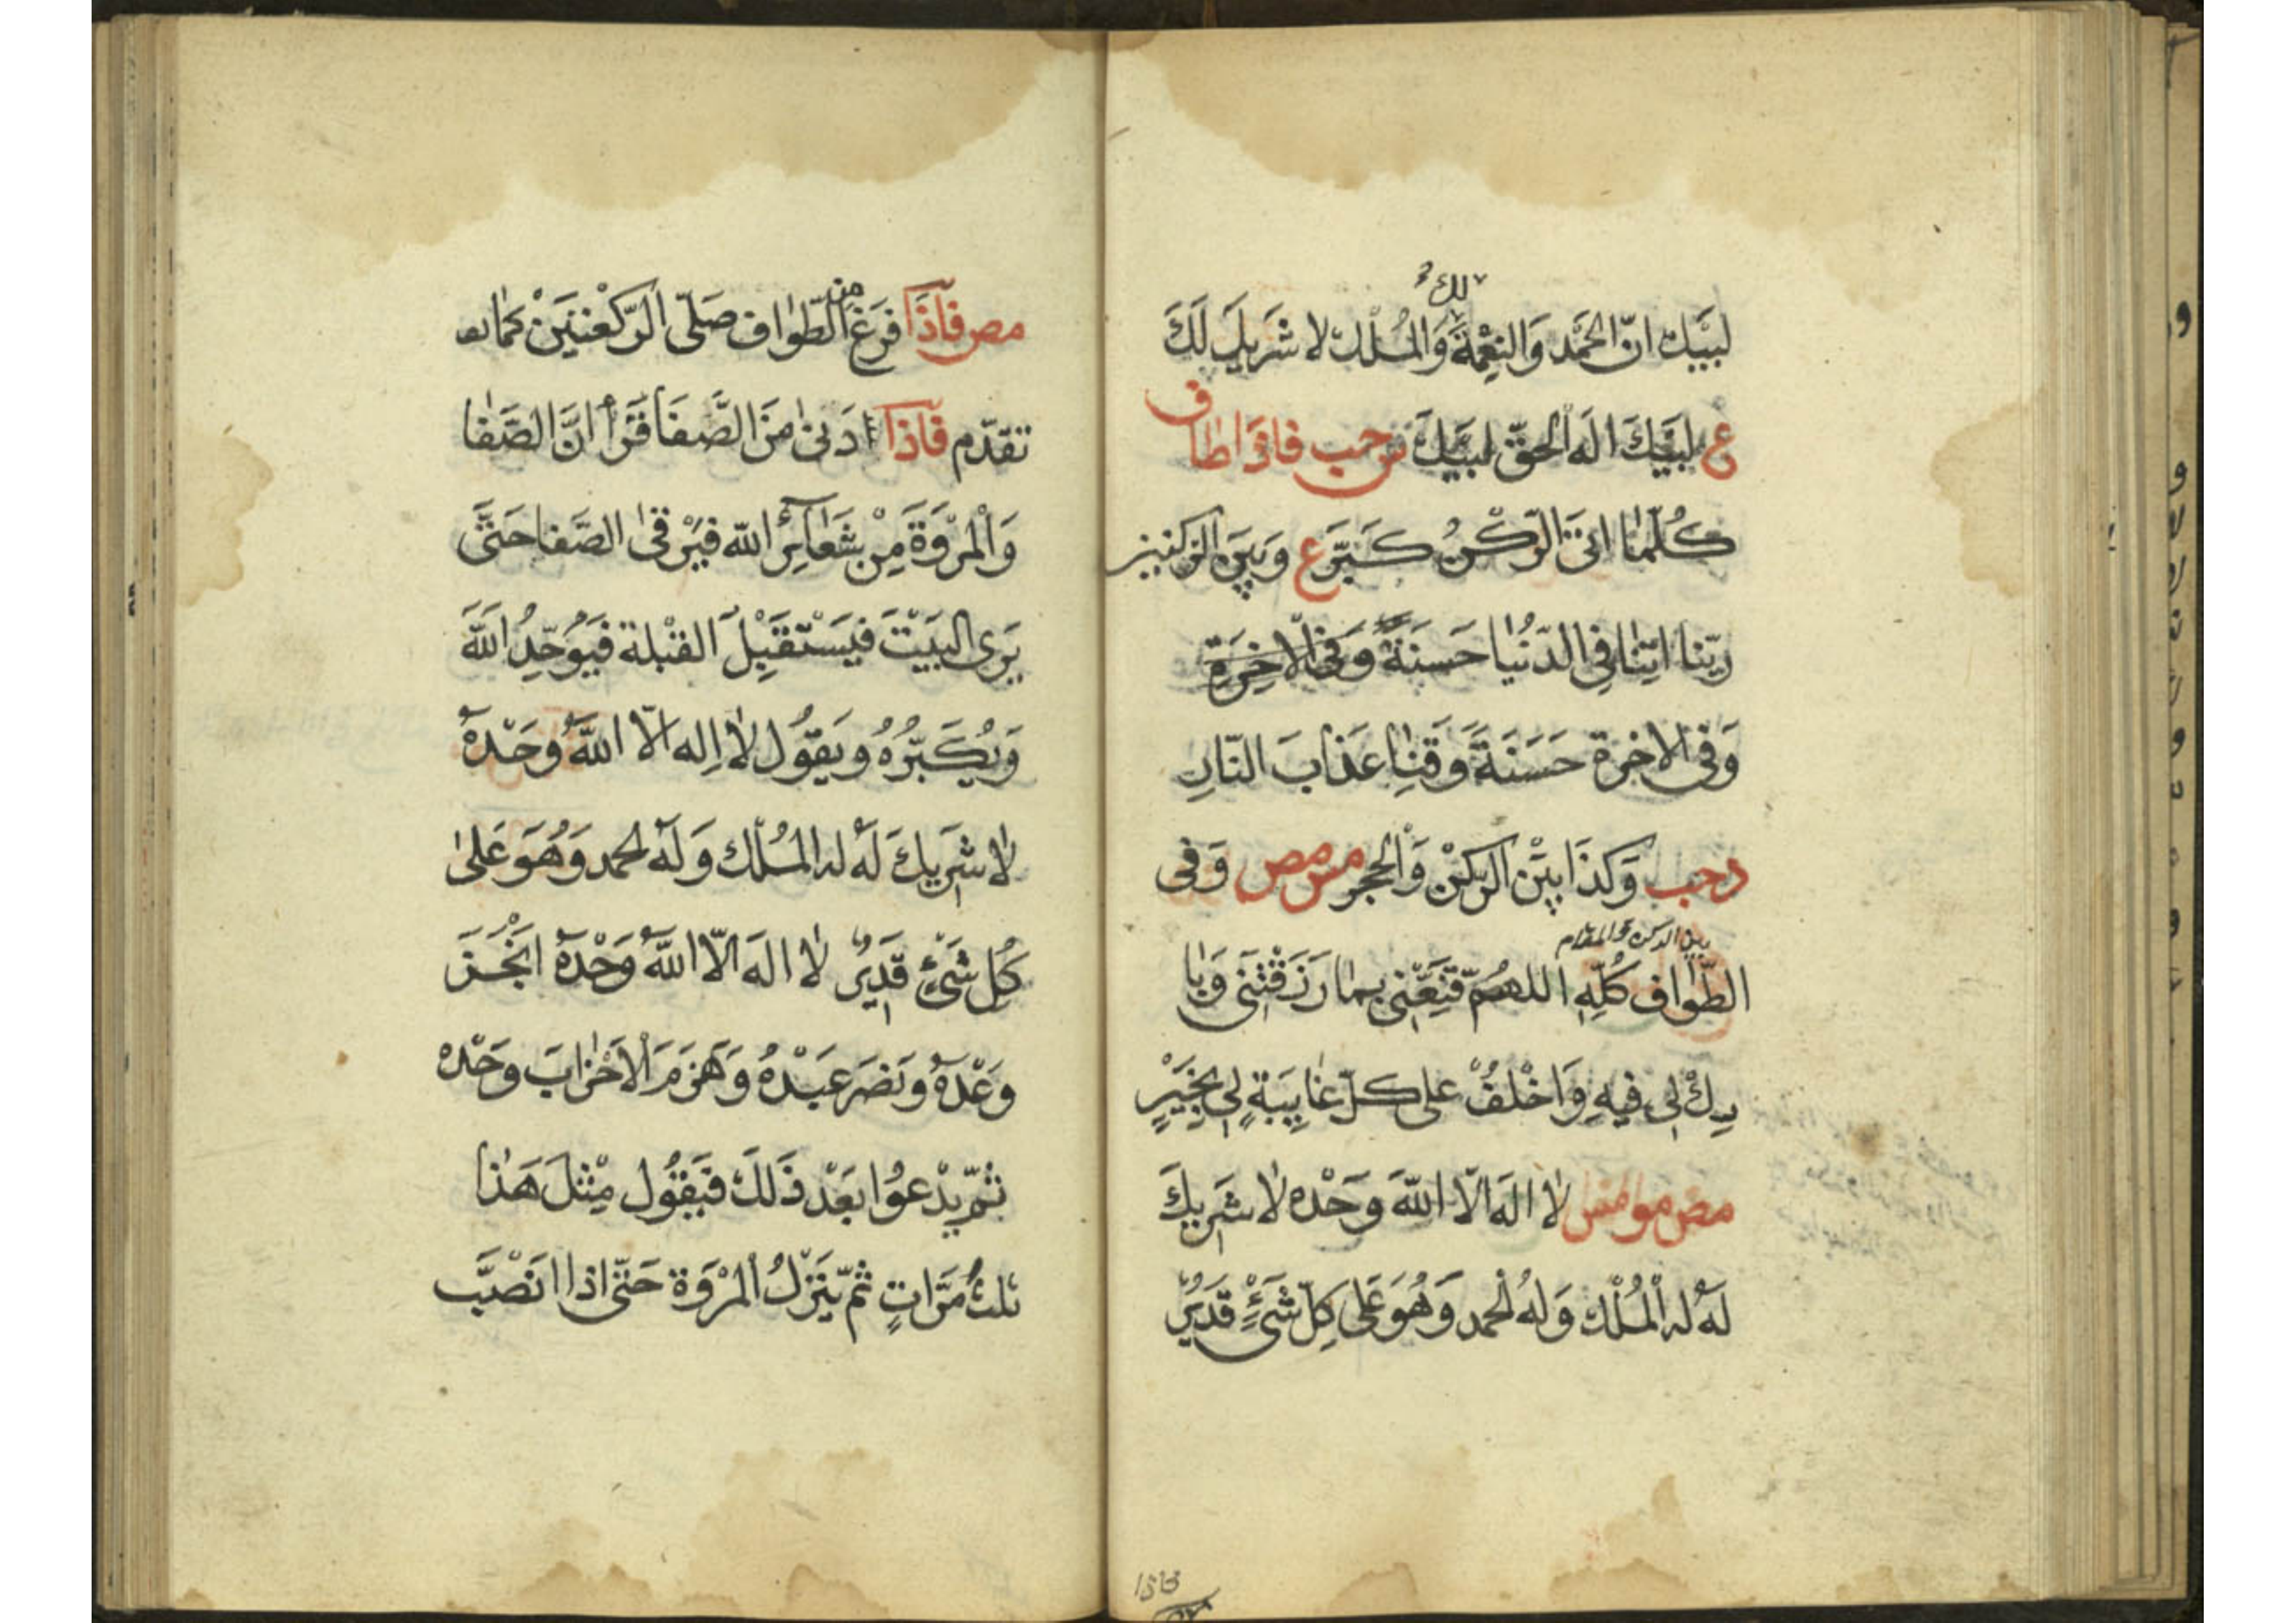 لك
لَبَّيْكَ اِنَّ الْحَمْدَ وَالنِّعْمَةَ وَالْمُلْكَ لا شَرِيكَ لَكَ
ع لَبَّيْكَ اِلَهَ الْحَقِّ لَبَّيْكَ س حب فَاِذَا طاف
كُلَّمٰا اَتَى الرُّكْنَ كَبَّرَ ع وَبَيْنَ الركنين
رَبَّنا اٰتِنٰا فِي الدُّنْيا حَسَنَةً وَفِي الْاخِرَةِ
وَفِي الاخرة حَسَنَةً وَقِنٰا عَذٰابَ النّارِ
د حب وَكَذَا بَيْنَ الرُّكْنِ وَالْحَجَرِ مس مص وَفِي
بين الركن والمقام
الطَّوٰاف كُلِّهِ اللهُمَّ قَنِّعْنِي بِمٰا رَزَقْتَنِي وَبٰا
رِكْ لِي فِيهِ وَاخْلُفْ عَلى كلّ غٰايِبَةٍ لِي بِخَيْرٍ
مص مو مص لٰا اِلَهَ اِلّا اللّهَ وَحْدَه لٰا شَرِيكَ
لَهُ له الْمُلْك وَلَهُ الْحمد وَهُوَ عَلى كلِّ شَيْءٍ قَدِيرٌ
مص فَاِذَا فَرَغَ من الطَّوٰاف صَلَّى الرَّكْعَتَيْنِ كَمٰا
تقدّم فَاِذَا دَنىٰ مِنَ الصَّفَا قَرَأَ اِنَّ الصَّفٰا
وَالْمَرْوَةَ مِنْ شَعٰائِرِ اللّه فَيَرْقىٰ الصَّفا حَتَّى
يَرَى الْبَيْتَ فَيَسْتَقْبِلَ القِبْلة فَيُوَحِّدُ اللّهَ
وَيُكَبِّرُهُ ويَقُول لٰا اِله الّا اللّهُ وَحْدَهُ
لٰا شَرِيكَ لَهُ له الْمُلْك وَلَهُ الحمد وَهُوَ عَلىٰ
كُلِّ شَيْءٍ قَدِيرٌ لٰا اِلَهَ اِلّا اللّهُ وَحْدَهُ اَنْجَزَ
وَعْدَهُ وَنَصَرَ عَبْدَهُ وَهَزَمَ الْاَحْزٰابَ وَحْدَه
ثُمَّ يَدْعُوا بَعْدَ ذَلَكَ فَيَقُول مِثْلَ هَذٰا
ثلثَ مَرَّاتٍ ثُمَّ يَنْزِلُ الْمَرْوَة حَتّى اِذا انْصَبَّ